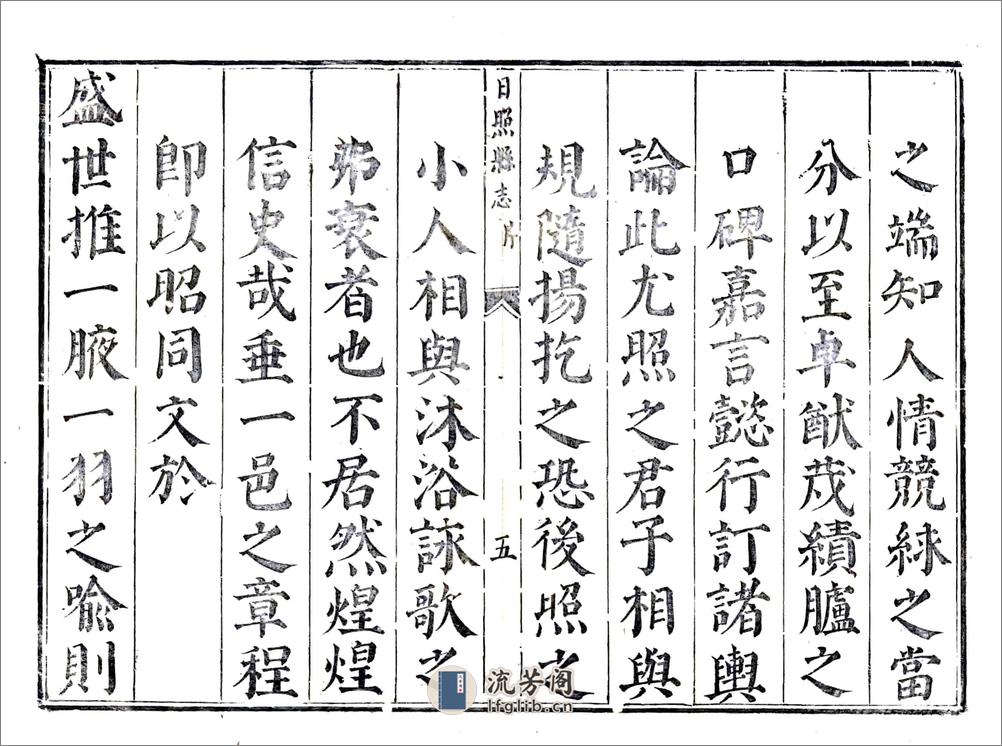 之端知人情競絿之當
分以至卓猷茂績臚之
口碑嘉言懿行訂諸輿
論此尤照之君子相與
規隨揚扢之恐後照之
日照縣志
五
小人相與沐浴詠歌之
弗衰者也不居然煌煌
信史哉垂一邑之章程
卽以昭同文於
盛世推一腋一羽之喻則
流芳阁
lfglib.cn